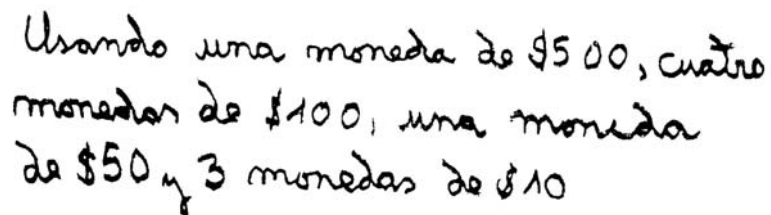 Usando una moneda de $500, cuatro
monedas de $100, una moneda
de $50 y 3 monedas de $10